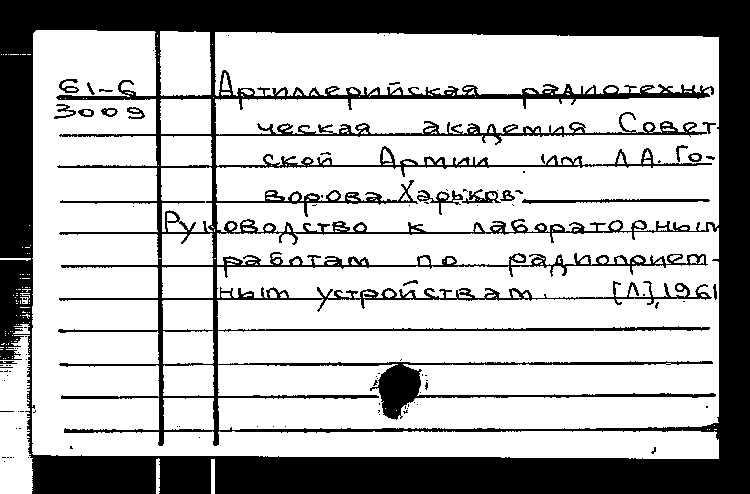 61-6
3009
Артиллерийская радиотехни
ческая академия Совет-
ской Армии им Л.А. Го-
ворова. Харьков.
Руководство к лабораторным
работам по радиоприем-
ным устройствам. [Л.], 1961